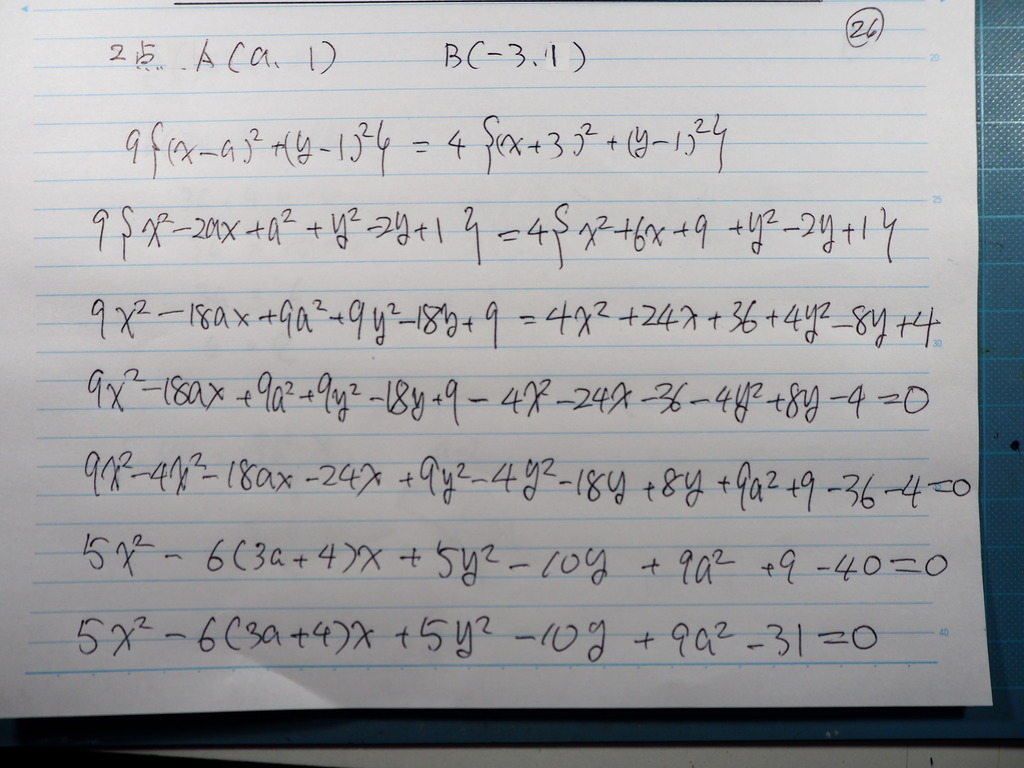 26
2点 A(a, 1) B(-3, 1)
9{(x-a)²+(y-1)²} = 4{(x+3)²+(y-1)²}
9{x²-2ax+a²+y²-2y+1} = 4{x²+6x+9+y²-2y+1}
9x²-18ax+9a²+9y²-18y+9 = 4x²+24x+36+4y²-8y+4
9x²-18ax+9a²+9y²-18y+9-4x²-24x-36-4y²+8y-4=0
9x²-4x²-18ax-24x+9y²-4y²-18y+8y+9a²+9-36-4=0
5x²-6(3a+4)x+5y²-10y+9a²+9-40=0
5x²-6(3a+4)x+5y²-10y+9a²-31=0
20
25
30
40